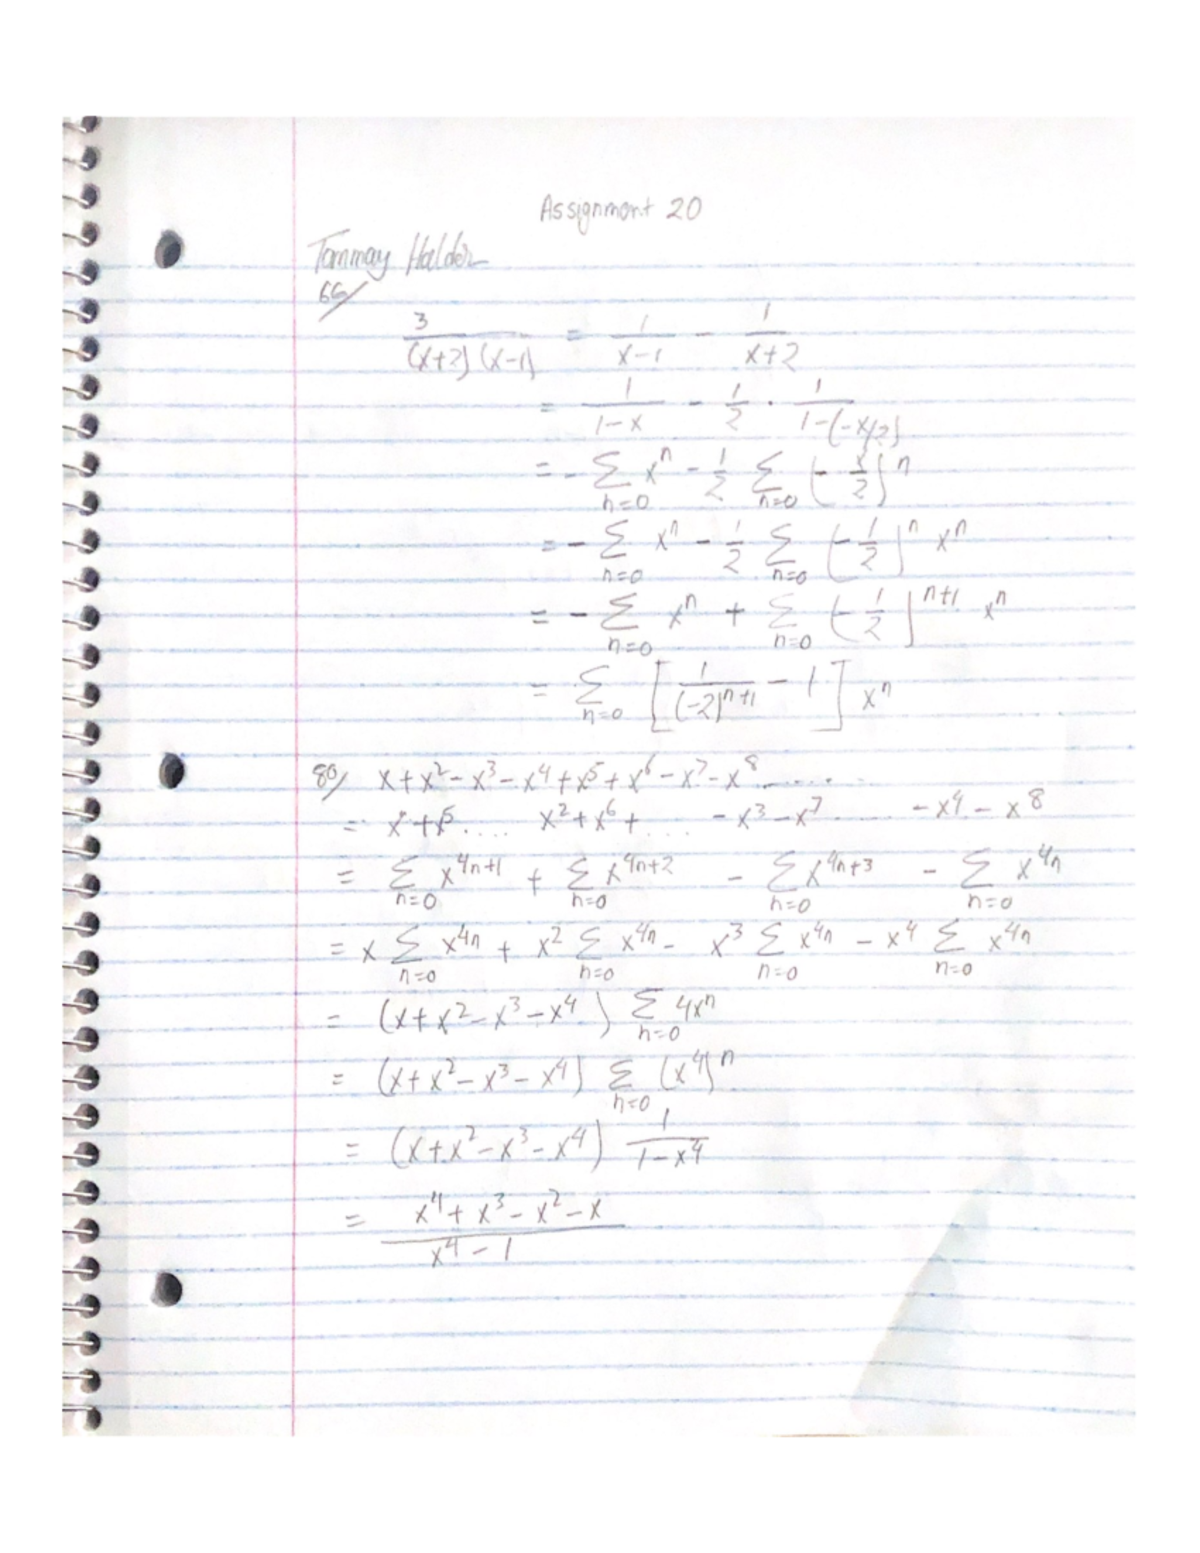 Assignment 20
Tommay Halder
66/
3/((x+2)(x-1)) = 1/(x-1) - 1/(x+2)
= 1/(1-x) - 1/2 · 1/(1-(-x/2))
= - Σ_{n=0} x^n - 1/2 Σ_{n=0} (-x/2)^n
= - Σ_{n=0} x^n - 1/2 Σ_{n=0} (-1/2)^n x^n
= - Σ_{n=0} x^n + Σ_{n=0} (-1/2)^{n+1} x^n
= Σ_{n=0} [1/(-2)^{n+1} - 1] x^n
80/ x+x^2-x^3-x^4+x^5+x^6-x^7-x^8......
= x+x^5.... x^2+x^6+.... -x^3-x^7...... -x^4-x^8
= Σ_{n=0} x^{4n+1} + Σ_{n=0} x^{4n+2} - Σ_{n=0} x^{4n+3} - Σ_{n=0} x^{4n}
= x Σ_{n=0} x^{4n} + x^2 Σ_{n=0} x^{4n} - x^3 Σ_{n=0} x^{4n} - x^4 Σ_{n=0} x^{4n}
= (x+x^2-x^3-x^4) Σ_{n=0} 4x^n
= (x+x^2-x^3-x^4) Σ_{n=0} (x^4)^n
= (x+x^2-x^3-x^4) 1/(1-x^4)
= (x^4+x^3-x^2-x)/(x^4-1)